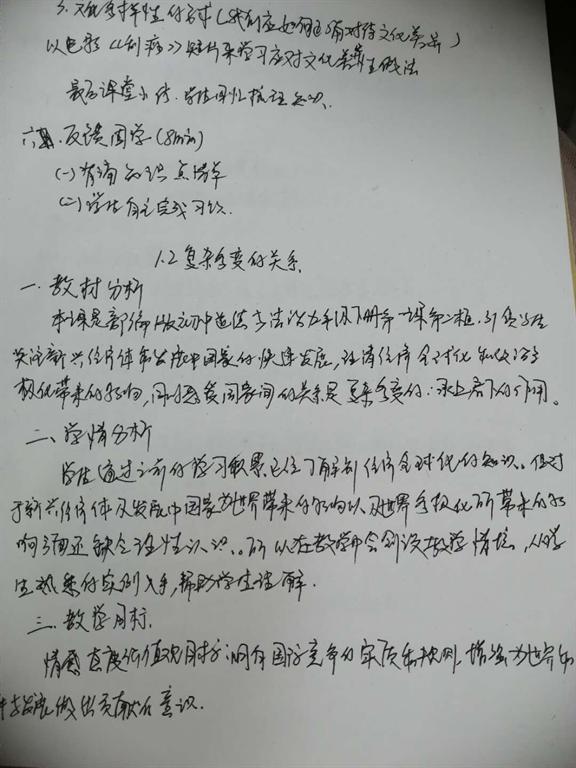 3. 文化多样性的要求(我们应如何正确对待文化差异)
以电影《刮痧》短片来学习应对文化差异的做法
最后课堂小结. 学生回忆梳理知识.
六. 反馈固学(8min)
(一)背诵知识点清单
(二)学生自主完成习题.
1.2 复杂多变的关系
一. 教材分析
本课是部编版初中道德与法治九年级下册第一课第二框. 引领学生
关注新兴经济体和发展中国家的快速发展, 理清经济全球化和政治多
极化带来的影响, 同时感受国家间的关系是复杂多变的. 承上启下的作用。
二、学情分析
学生通过之前的学习积累已经了解到经济全球化的知识。但对
于新兴经济体及发展中国家为世界带来的影响以及世界多极化所带来的影
响方面还缺乏理性认识。所以在教学中会创设教学情境, 从学
生熟悉的实例入手, 帮助学生理解.
三. 教学目标
情感态度价值观目标: 洞察国际竞争的实质和规则, 增强为世界和
平与发展做出贡献的意识.